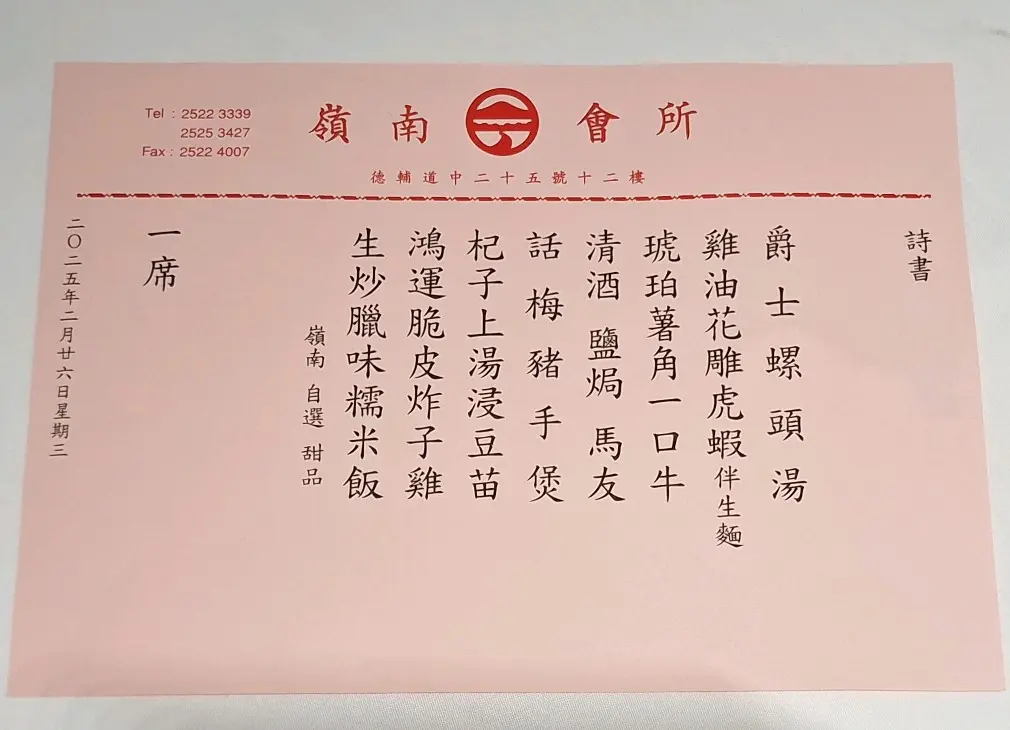 Tel : 2522 3339
2525 3427
Fax : 2522 4007
嶺南會所
德輔道中二十五號十二樓
詩書
爵士螺頭湯
雞油花雕虎蝦伴生麵
琥珀薯角一口牛
清酒鹽焗馬友
話梅豬手煲
杞子上湯浸豆苗
鴻運脆皮炸子雞
生炒臘味糯米飯
嶺南自選甜品
一席
二〇二五年二月廿六日星期三